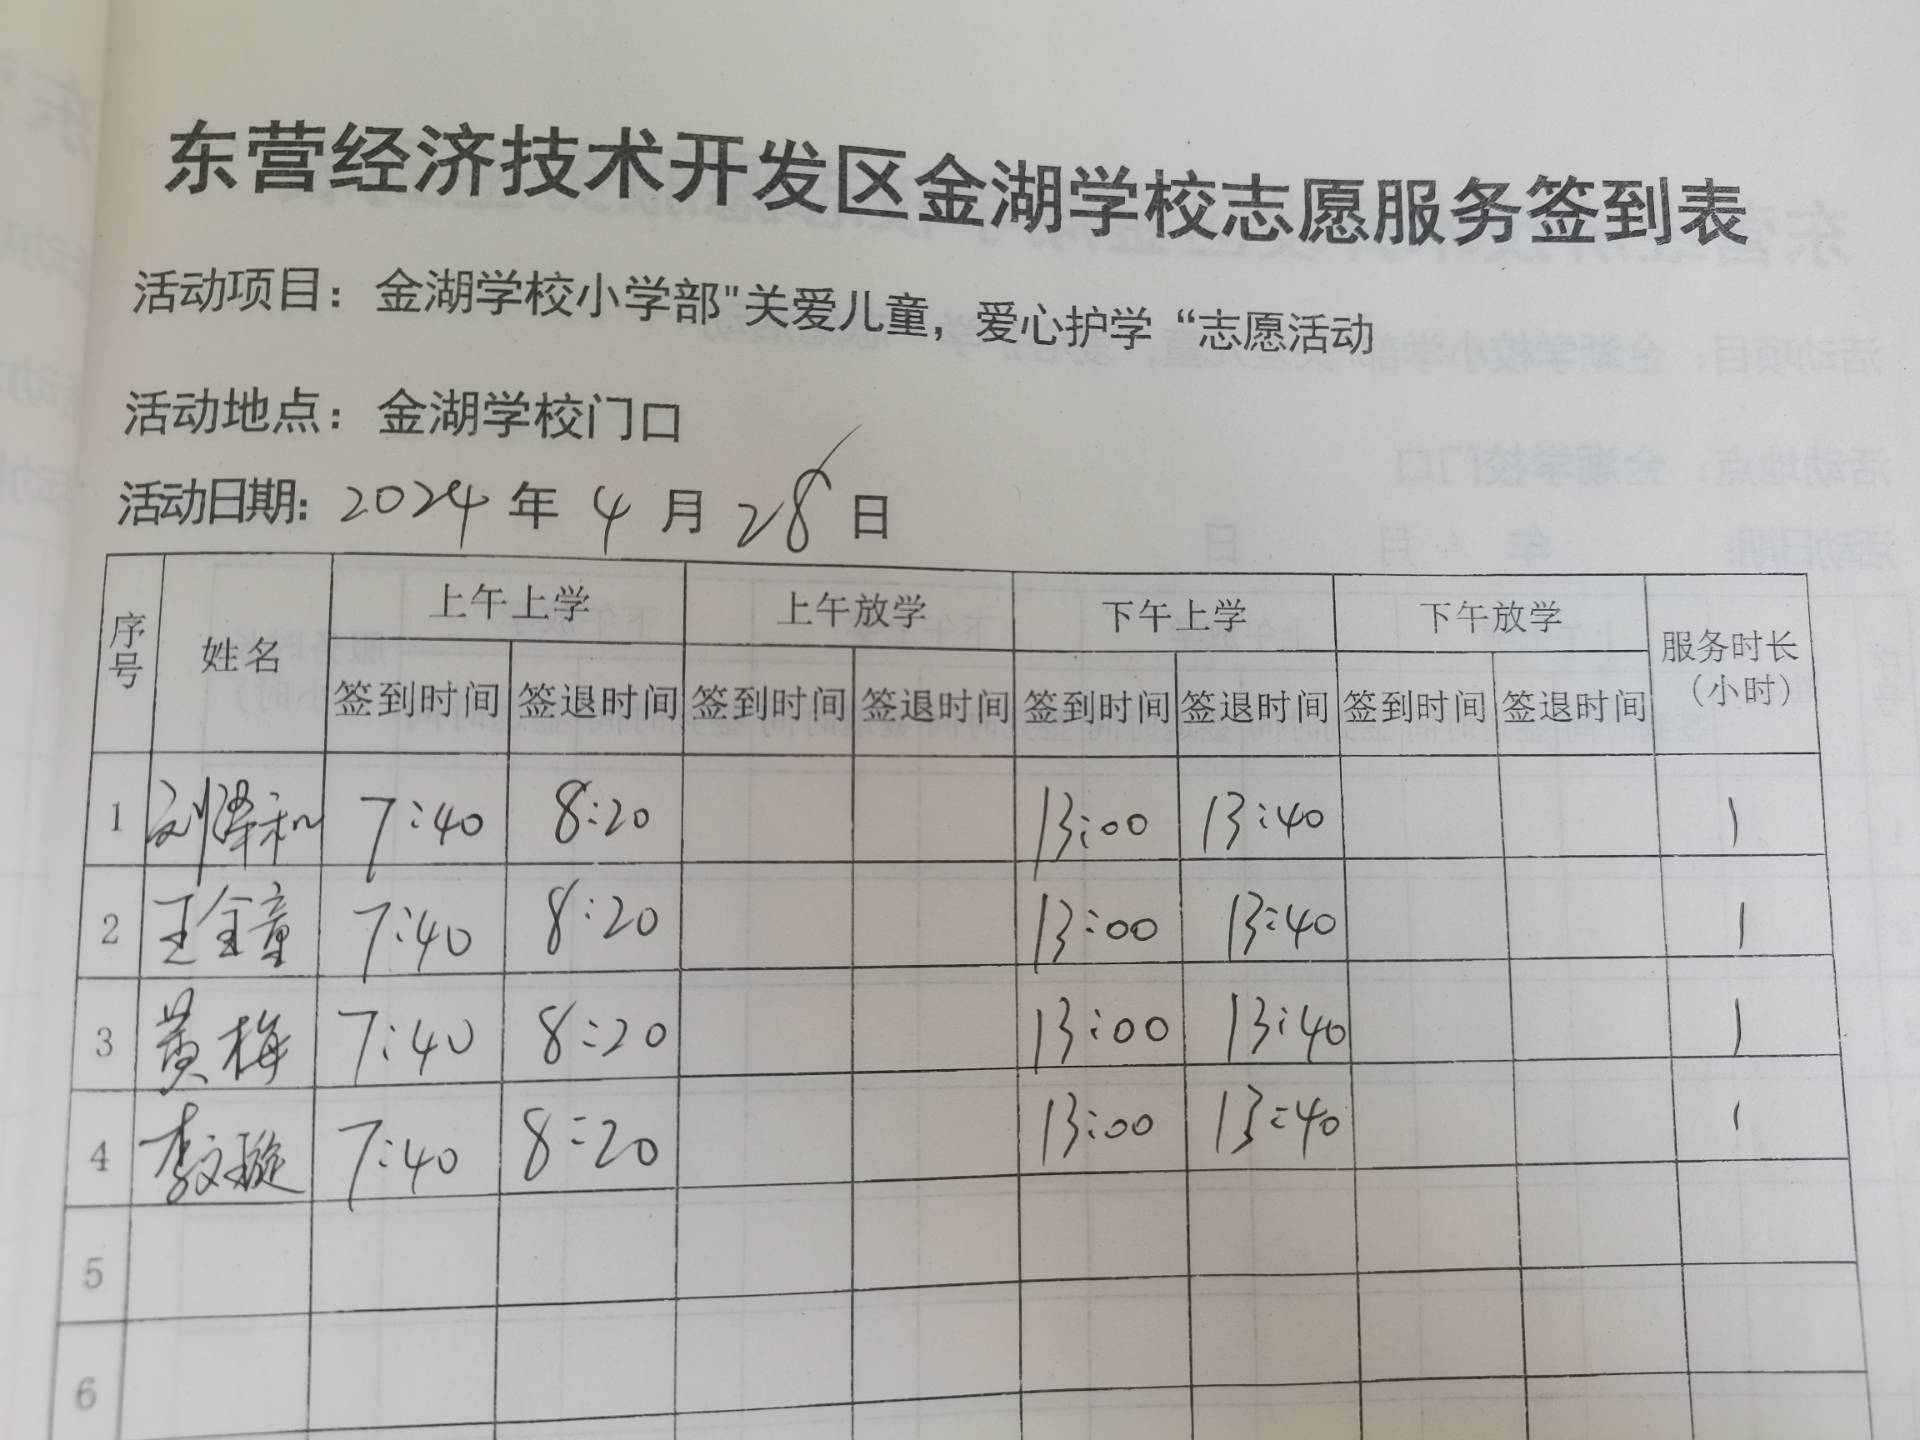 东营经济技术开发区金湖学校志愿服务签到表
活动项目：金湖学校小学部"关爱儿童，爱心护学“志愿活动
活动地点：金湖学校门口
活动日期：2024年4月28日
序号 姓名 上午上学 上午放学 下午上学 下午放学 服务时长（小时）
签到时间 签退时间 签到时间 签退时间 签到时间 签退时间 签到时间 签退时间
1 刘泽和 7:40 8:20 13:00 13:40 1
2 王全童 7:40 8:20 13:00 13:40 1
3 黄梅 7:40 8:20 13:00 13:40 1
4 李文璇 7:40 8:20 13:00 13:40 1
5
6